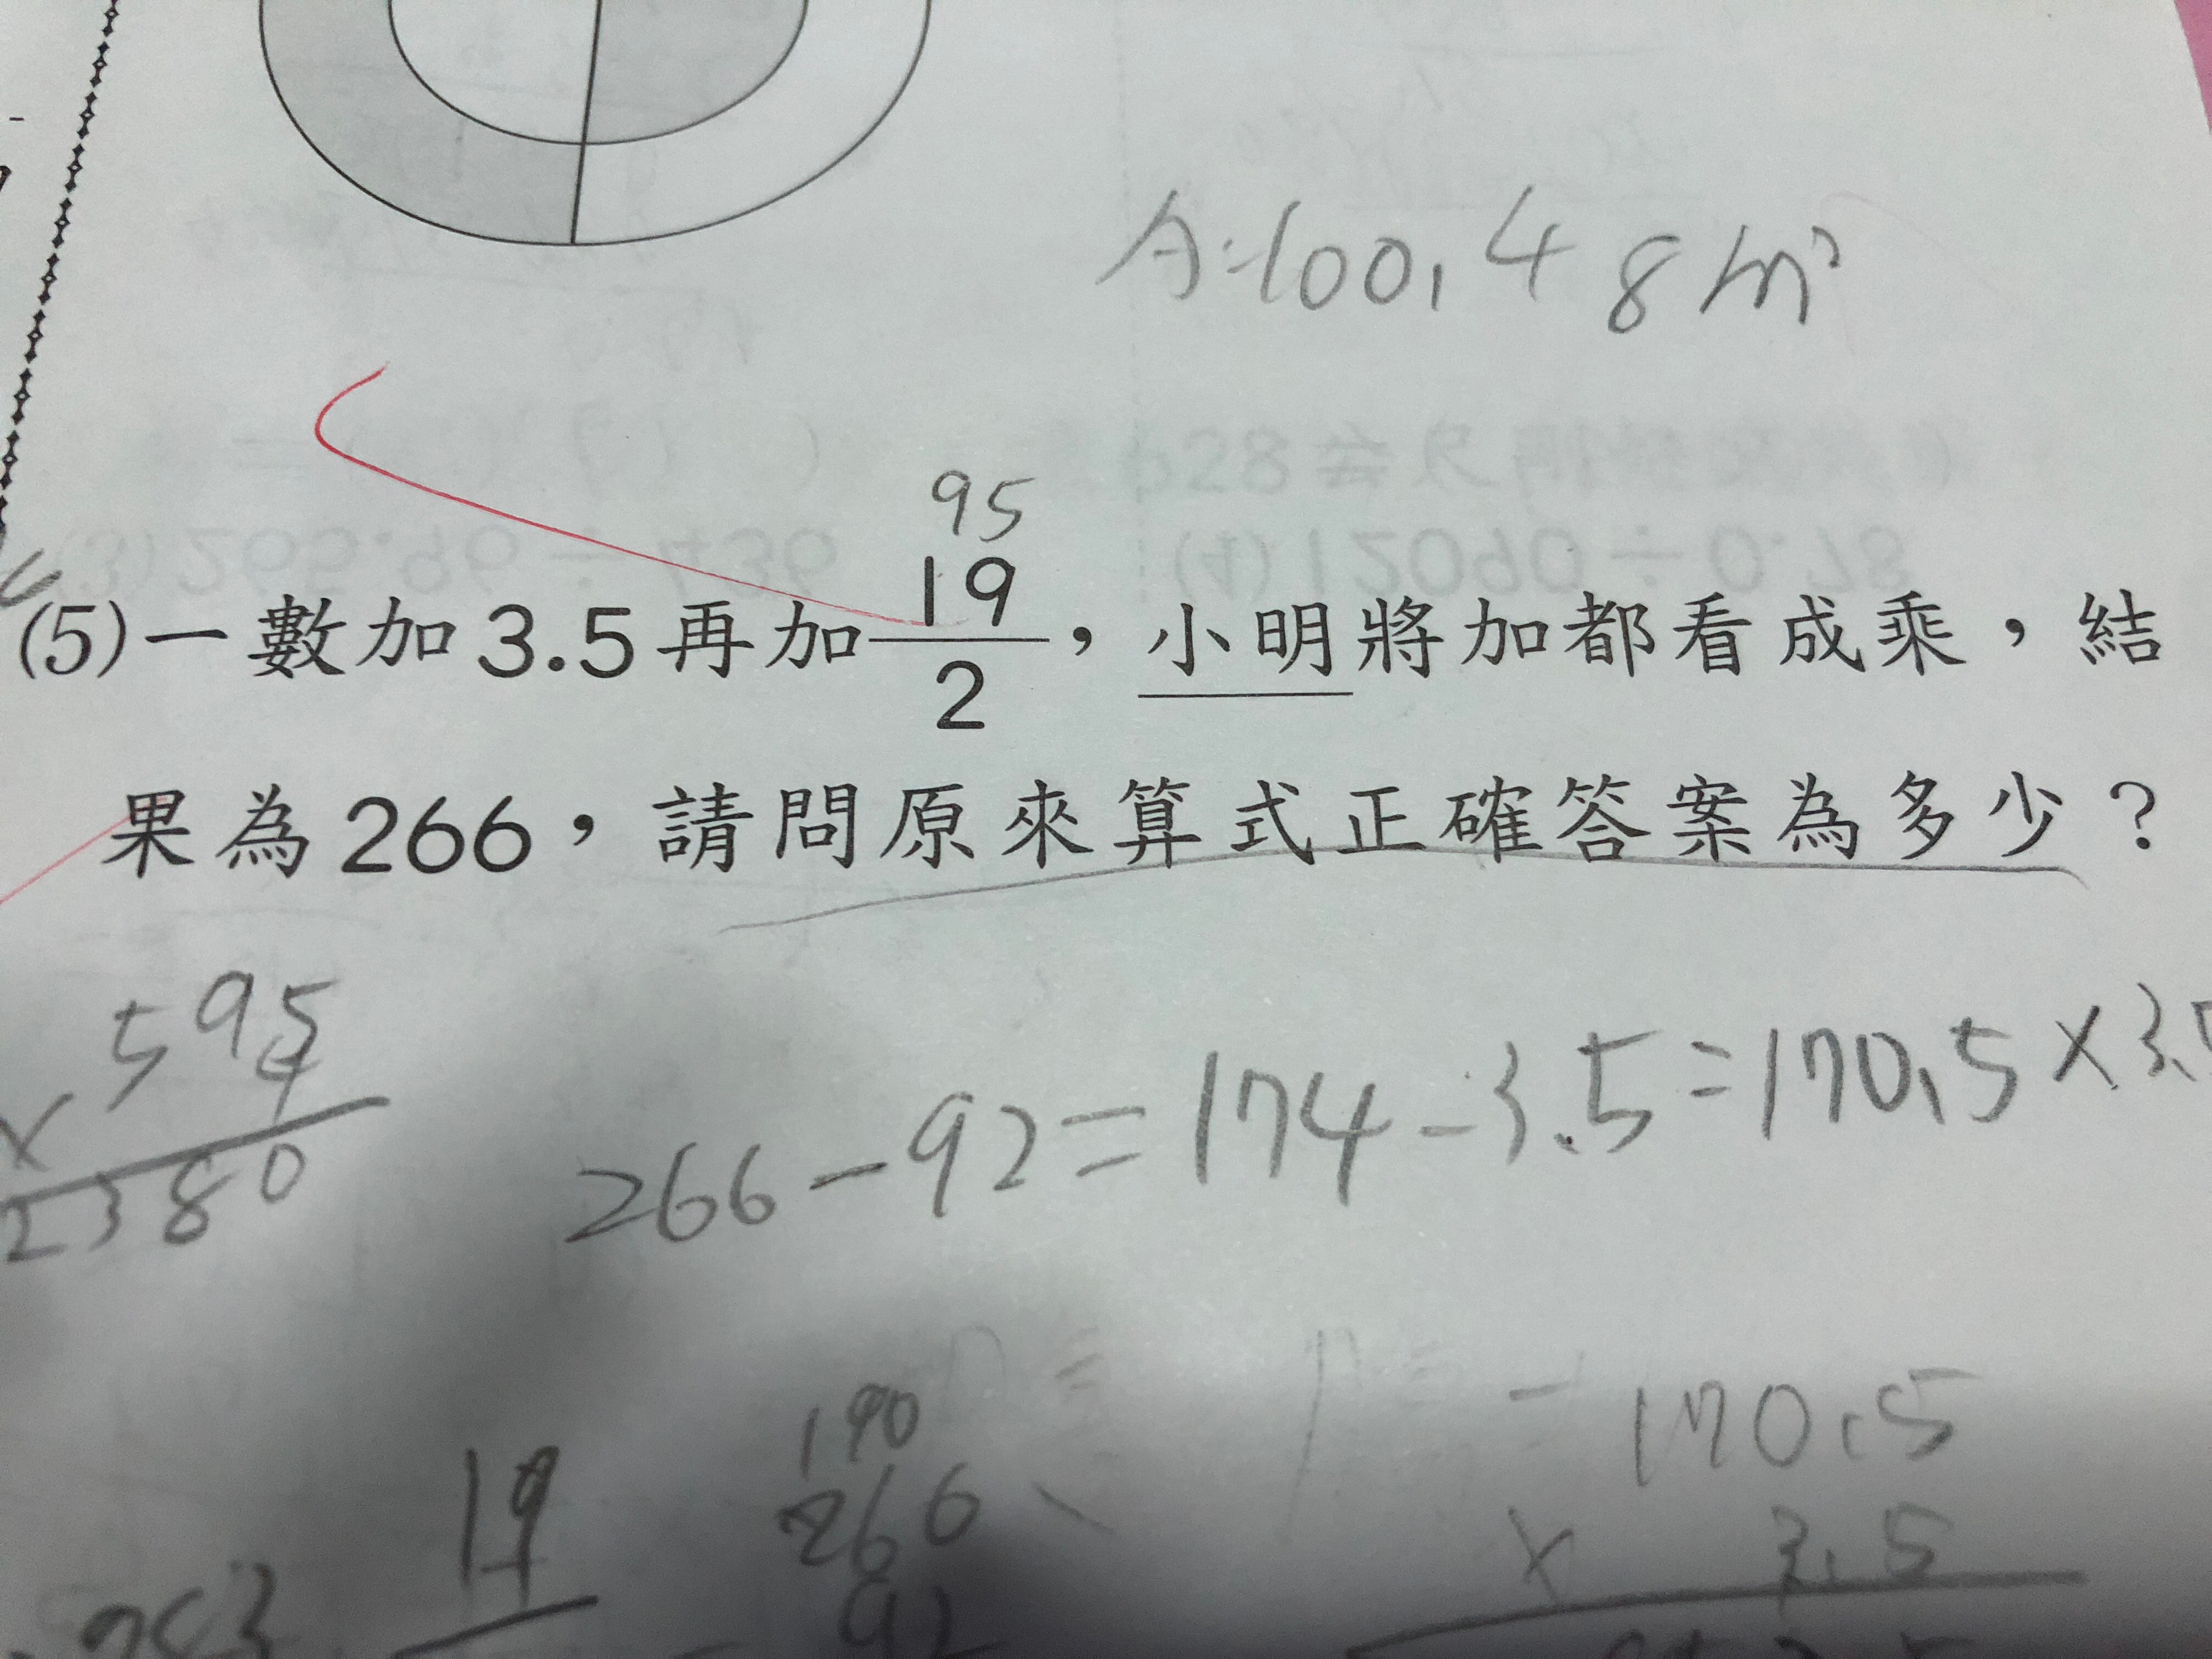 A:100.48m²
95
(5)一數加3.5再加19/2，小明將加都看成乘，結
果為266，請問原來算式正確答案為多少？
595
× 4
2380
266-92=174-3.5=170.5×3.5
19
190
266
92
170.5
× 3.5